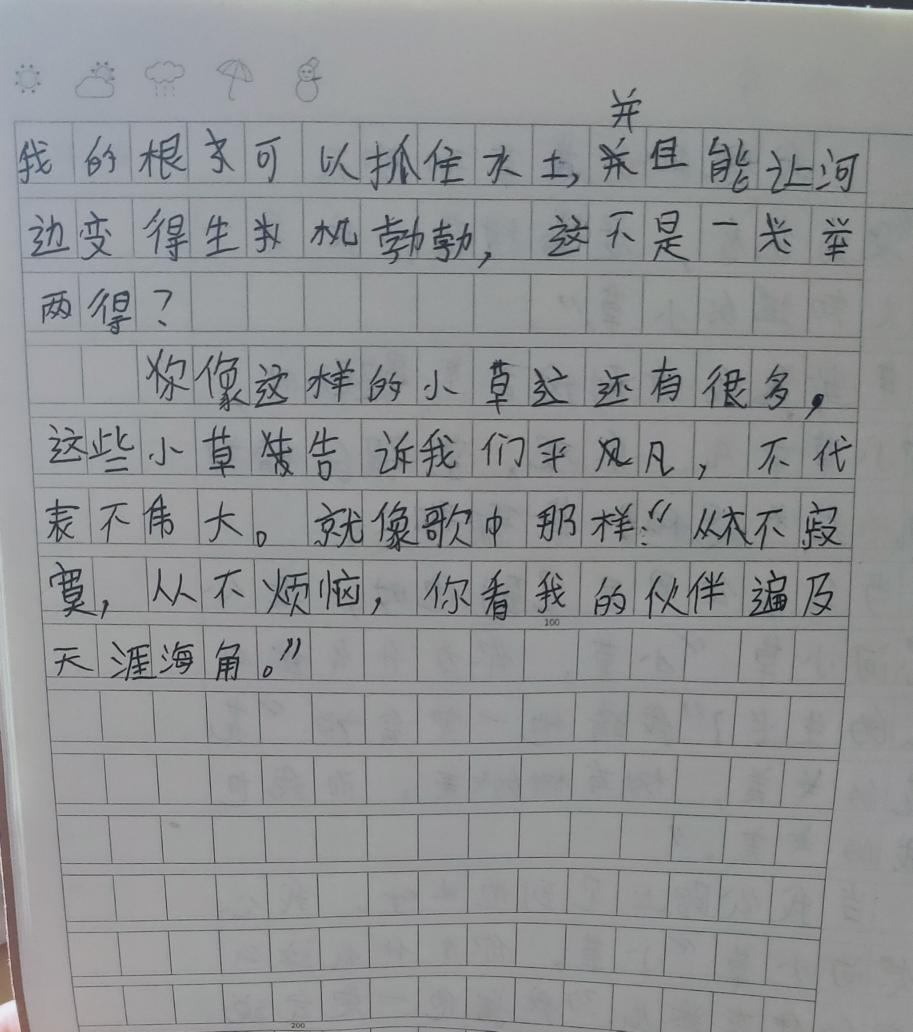 并
我的根系可以抓住水土,并且能让河
边变得生机勃勃,这不是一举
两得?
像这样的小草还有很多,
这些小草告诉我们平凡,不代
表不伟大。就像歌中那样:“从不寂
寞,从不烦恼,你看我的伙伴遍及
100
天涯海角。”
200